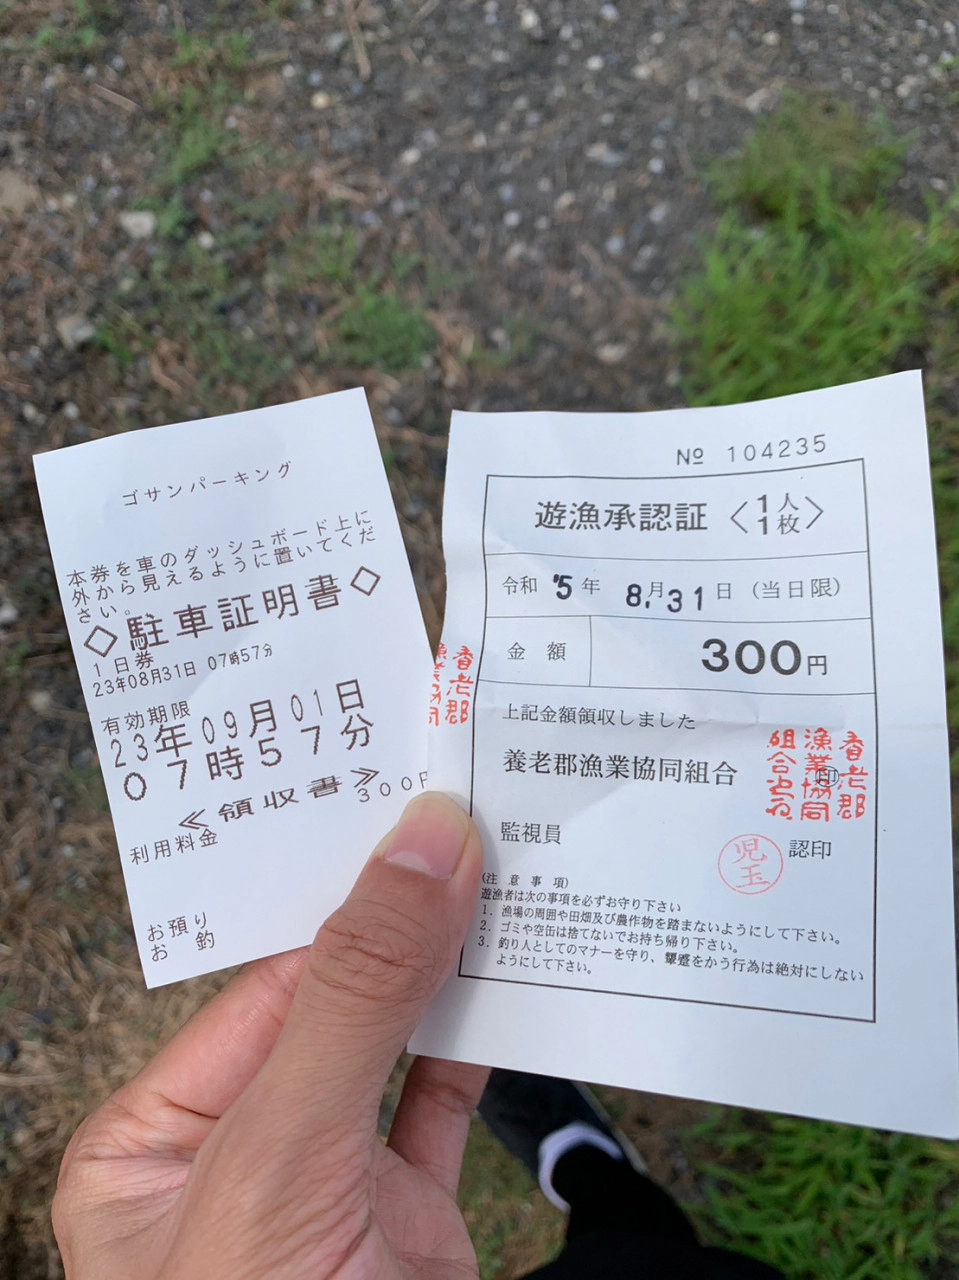 ゴサンパーキング
本券を車のダッシュボード上に
外から見えるように置いてくだ
さい。
◇駐車証明書◇
1日券
23年08月31日 07時57分
有効期限
23年09月01日
07時57分
≪領収書≫
利用料金 300円
お預り
お 釣
№ 104235
遊漁承認証〈1人1枚〉
令和 5年 8月31日(当日限)
金 額 300円
上記金額領収しました
養老郡漁業協同組合 印
養老郡
漁業協同
監視員
児玉
認印
(注 意 事 項)
遊漁者は次の事項を必ずお守り下さい
1. 漁場の周囲や田畑及び農作物を踏まないようにして下さい。
2. ゴミや空缶は捨てないでお持ち帰り下さい。
3. 釣り人としてのマナーを守り、顰蹙をかう行為は絶対にしない
ようにして下さい。